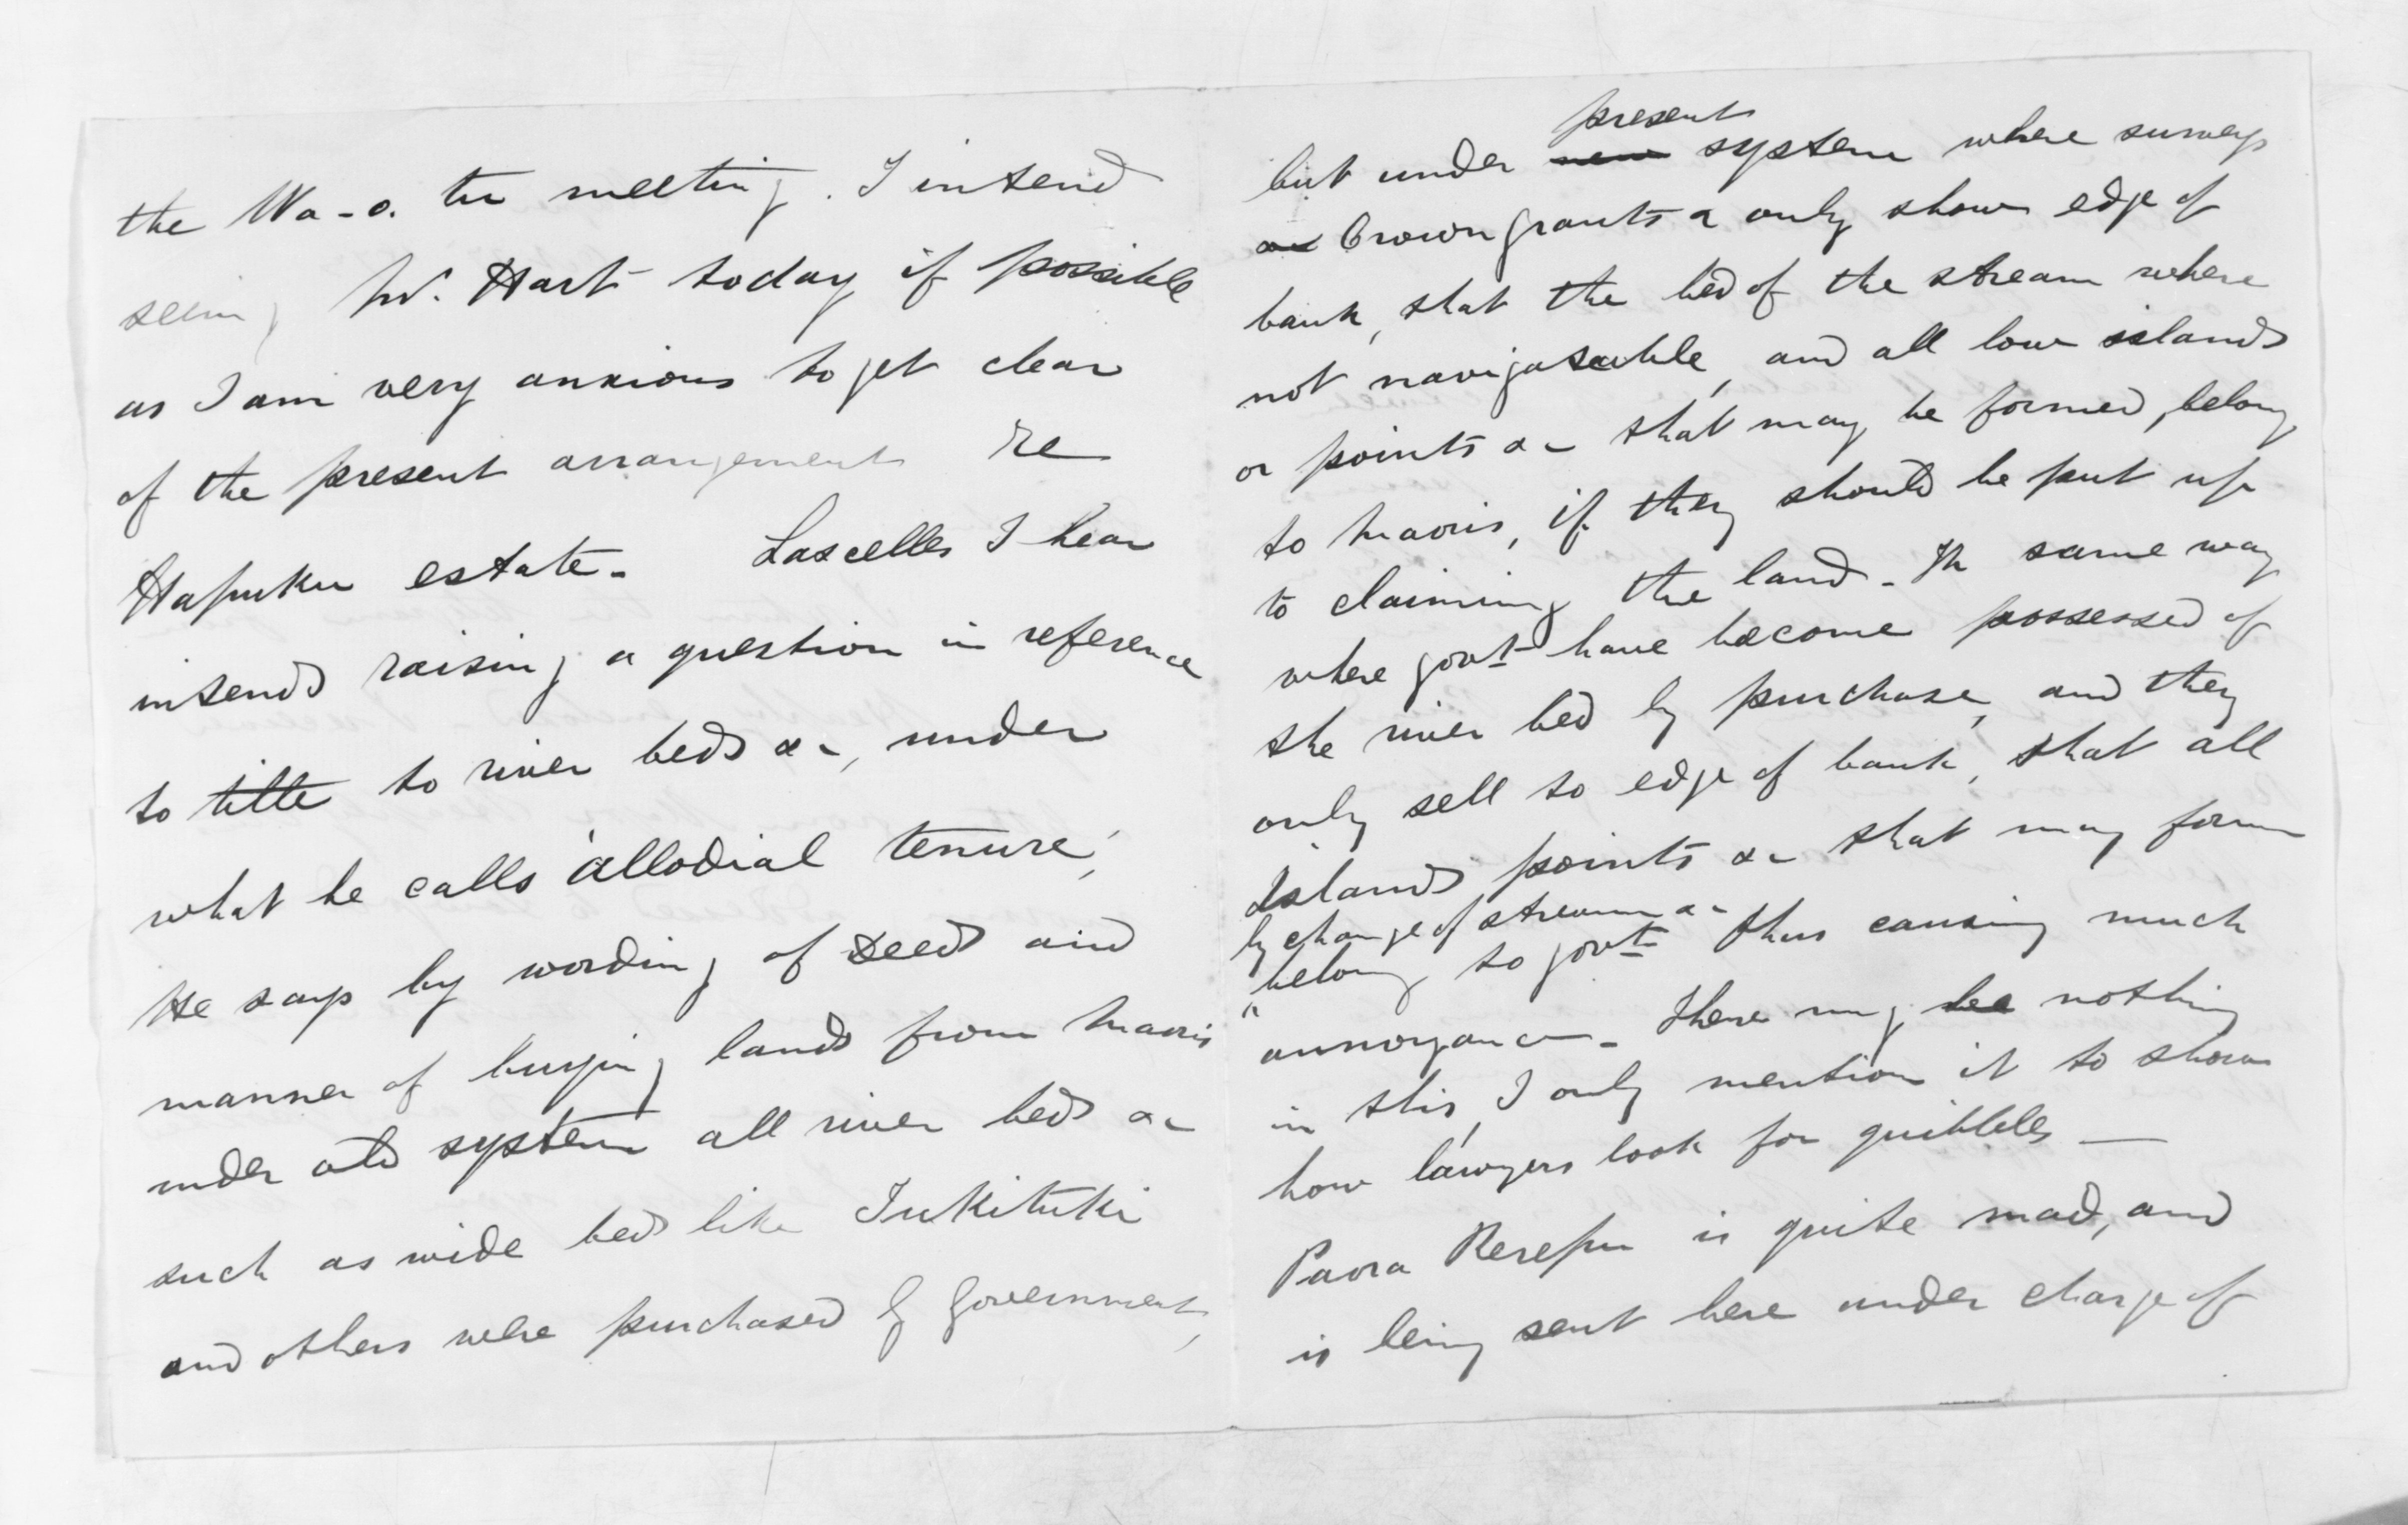 the Wa-o. tu meeting. I intend
seeing Mr. Hart today if possible
as I am very anxious to get clear
of the present arrangement re
Hapuku estate. Lascelles I hear
intends raising a question in reference
to title to river beds &c, under
what he calls 'allodial tenure,'
He says by wording of deeds and
manner of buying lands from Maoris
under old system all river beds &c
such as wide beds like Tukituki
and others were purchased by Government,
but under new present system where surveys
as Crown grants & only show edge of
bank, that the bed of the stream where
not navigateable, and all low islands
or points &c that may be formed, belong
to Maoris, if they should be put up
to claiming the land. In same way
where govt have become possessed of
the river bed by purchase, and they
only sell to edge of bank, that all
Islands points &c that may form
by change of stream &c
"belong to govt thus causing much
annoyance. There may be nothing
in this, I only mention it to show
how lawyers look for quibbles —
Paora Rerepu is quite mad, and
is being sent here under charge of